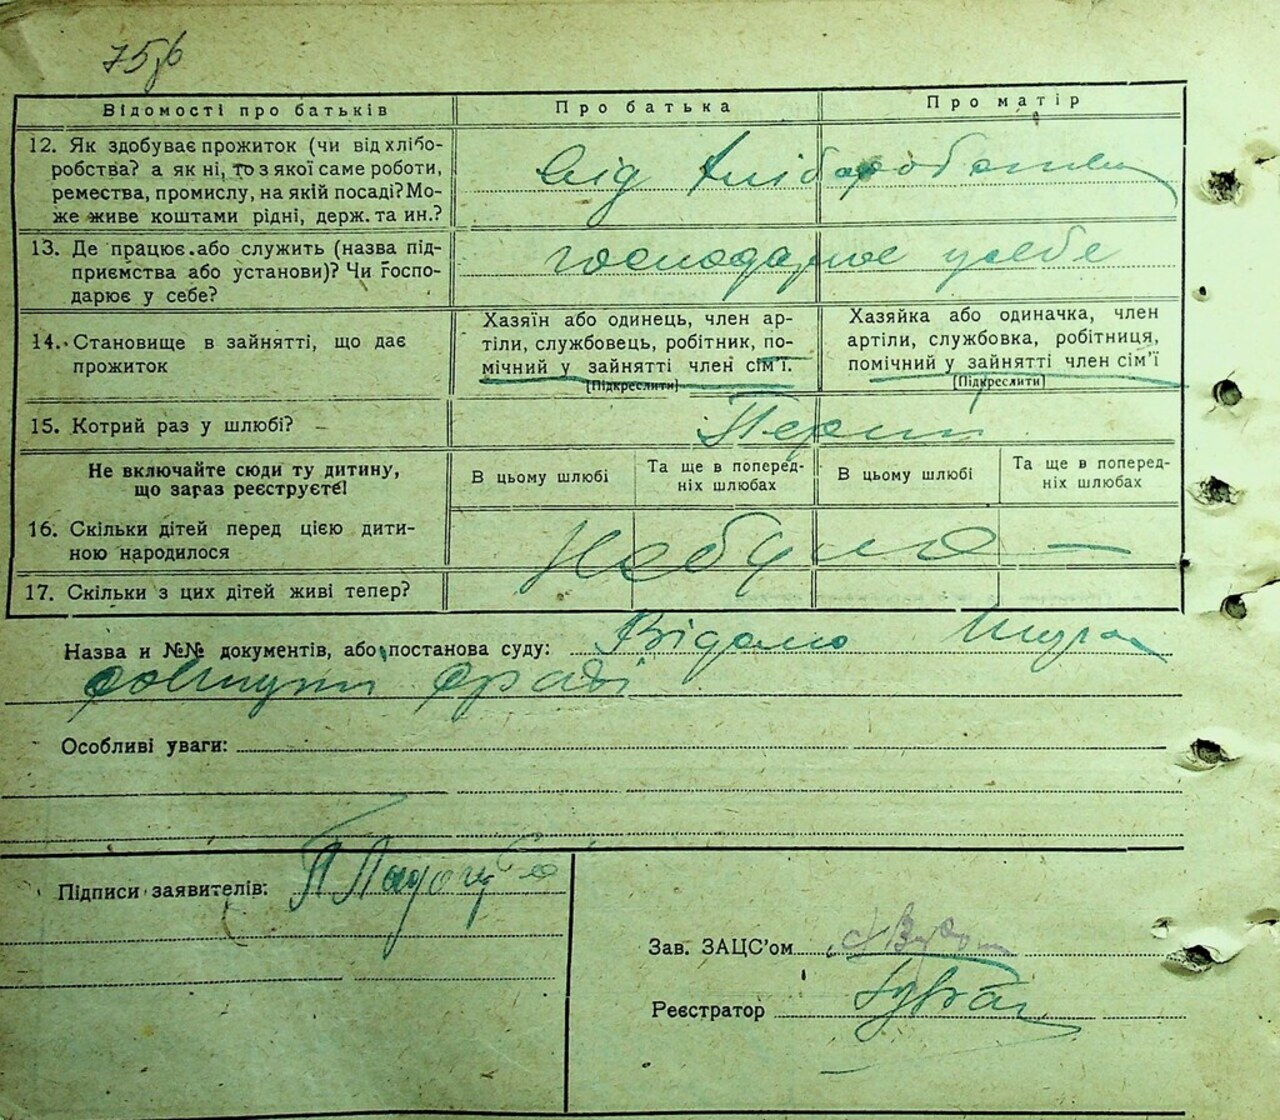 Відомості про батьків
Про батька
Про матір
12. Як здобуває прожиток (чи від хлібо-
робства? а як ні, то з якої саме роботи,
ремества, промислу, на якій посаді? Мо-
же живе коштами рідні, держ. та ин.?
від хліборобства
13. Де працює або служить (назва під-
приємства або установи)? Чи госпо-
дарює у себе?
господарює у себе
14. Становище в зайнятті, що дає
прожиток
Хазяїн або одинець, член ар-
тілі, службовець, робітник, по-
мічний у зайнятті член сім'ї.
(Підкреслити)
Хазяйка або одиначка, член
артіли, службовка, робітниця,
помічний у зайнятті член сім'ї
(Підкреслити)
15. Котрий раз у шлюбі?
Перший
Не включайте сюди ту дитину,
що зараз реєструєте!
В цьому шлюбі
Та ще в поперед-
ніх шлюбах
В цьому шлюбі
Та ще в поперед-
ніх шлюбах
16. Скільки дітей перед цією дити-
ною народилося
Небуло —
17. Скільки з цих дітей живі тепер?
Назва и №№ документів, або постанова суду: Відомо
раді
Особливі уваги:
Підписи заявителів:
Зав. ЗАЦС'ом
Реєстратор